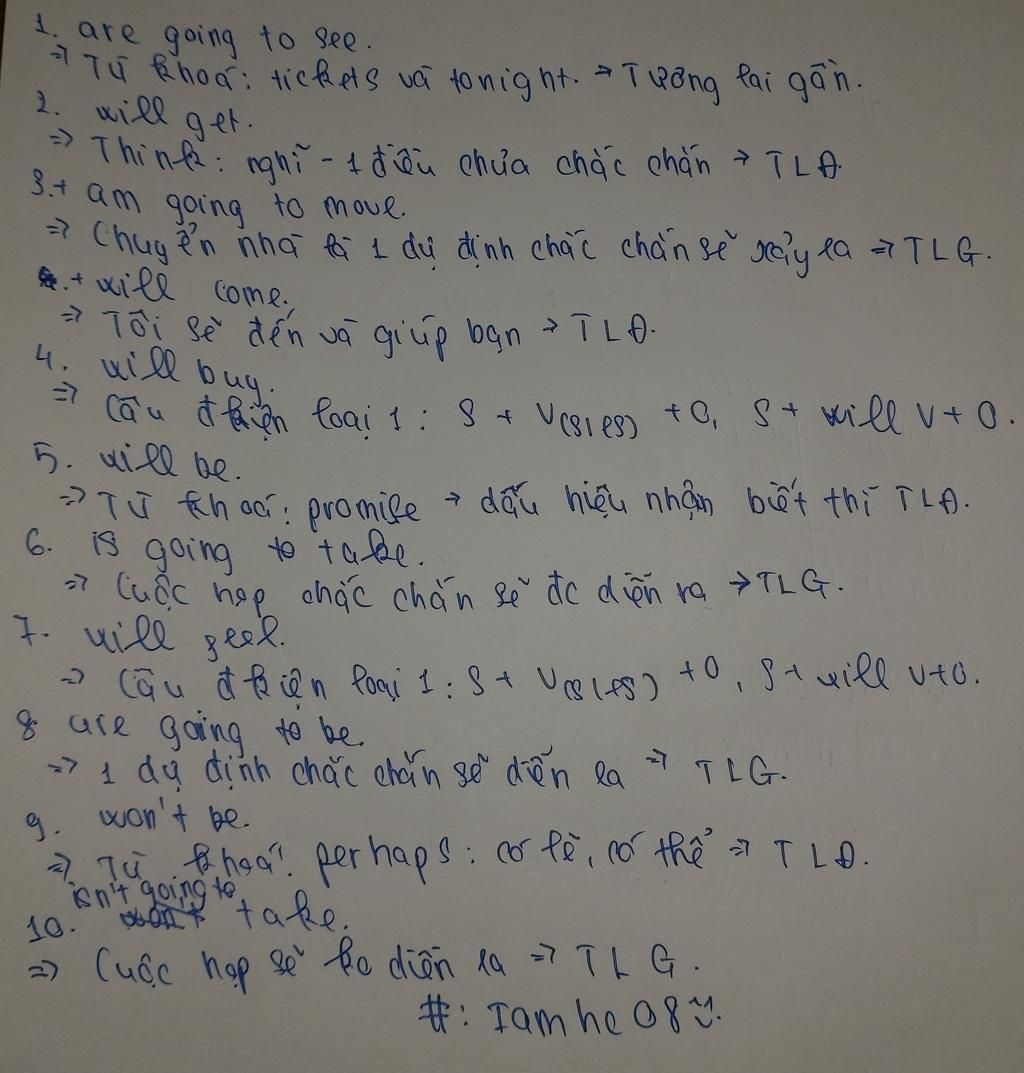 1. are going to see.
=> Từ khoá: tickets và tonight. => Tương lai gần.
2. will get.
=> Think: nghĩ - 1 điều chưa chắc chắn => TLĐ
3.+ am going to move.
=> Chuyển nhà là 1 dự định chắc chắn sẽ xảy ra => TLG.
+ will come.
=> Tôi sẽ đến và giúp bạn => TLĐ.
4. will buy.
=> Câu đkiện loại 1: S + V(s/es) + O, S + will V + O.
5. will be.
=> Từ khoá: promise → dấu hiệu nhận biết thì TLĐ.
6. is going to take.
=> Cuộc họp chắc chắn sẽ đc diễn ra => TLG.
7. will feel.
=> Câu đkiện loại 1: S + V(s/es) + O, S + will V + O.
8 are going to be.
=> 1 dự định chắc chắn sẽ diễn ra => TLG.
9. won't be.
=> Từ khoá: perhaps: có lẽ, có thể => TLĐ.
isn't going to
10. take.
=> Cuộc họp sẽ ko diễn ra => TLG.
#: Iamhc08